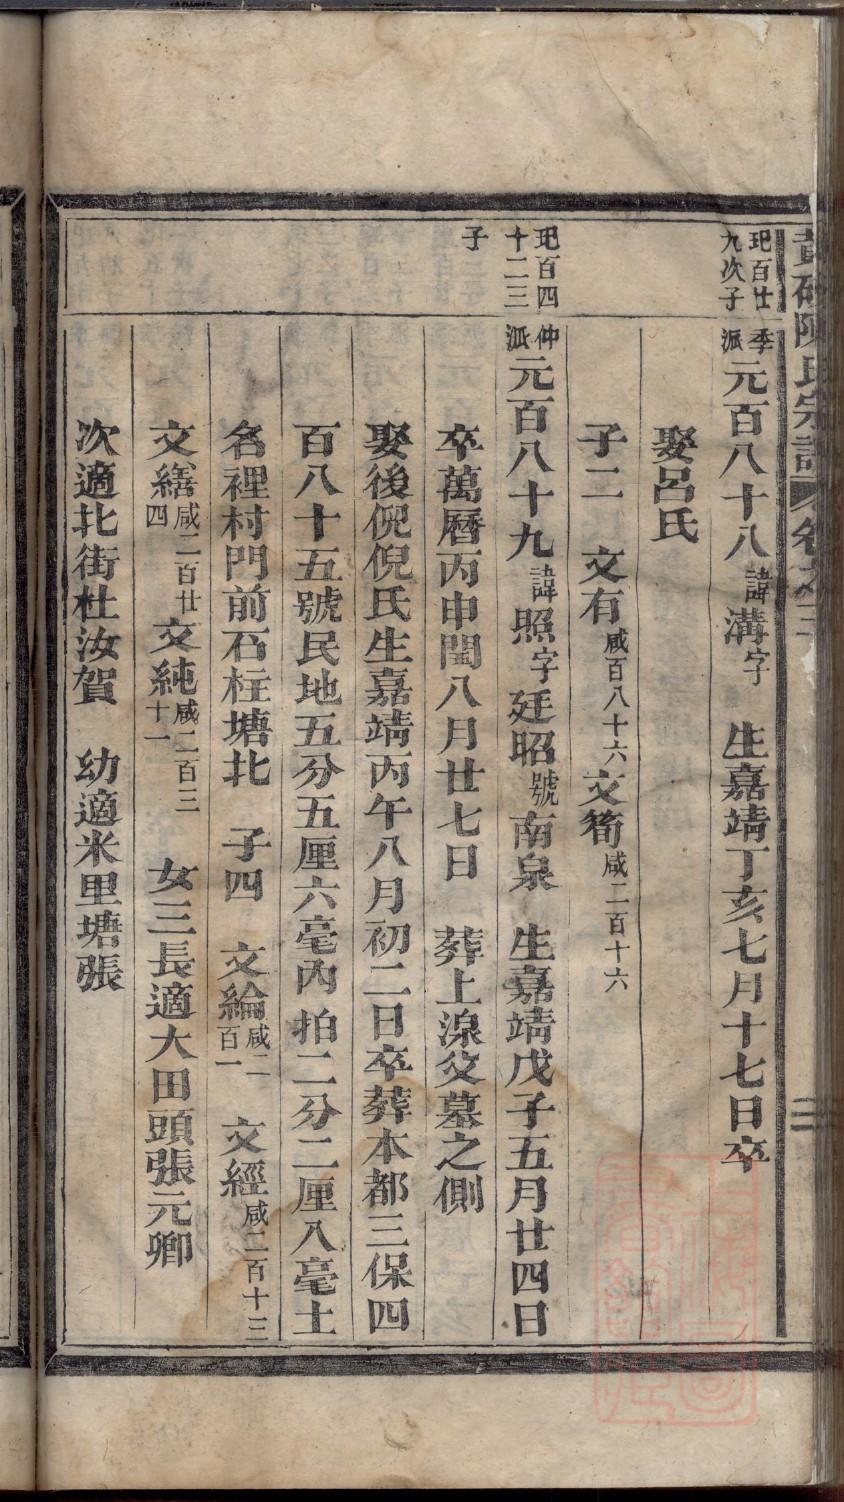 陳氏宗譜 卷之三
玘百廿九次子
季派元百八十八諱溝字 生嘉靖丁亥七月十七日卒
娶呂氏
子二 文有咸百八十六文筍咸二百十六
玘百四十二三子
仲派元百八十九諱照字廷昭號南泉 生嘉靖戊子五月廿四日
卒萬曆丙申閏八月廿七日 葬上湶父墓之側
娶後倪倪氏生嘉靖丙午八月初二日卒葬本都三保四
百八十五號民地五分五厘六毫內拍二分二厘八毫土
名裡村門前石柱塘北 子四 文綸咸二百一 文經咸二百十三
文繕咸二百廿四 文純咸二百三十一 女三長適大田頭張元卿
次適北街杜汝賀 幼適米里塘張